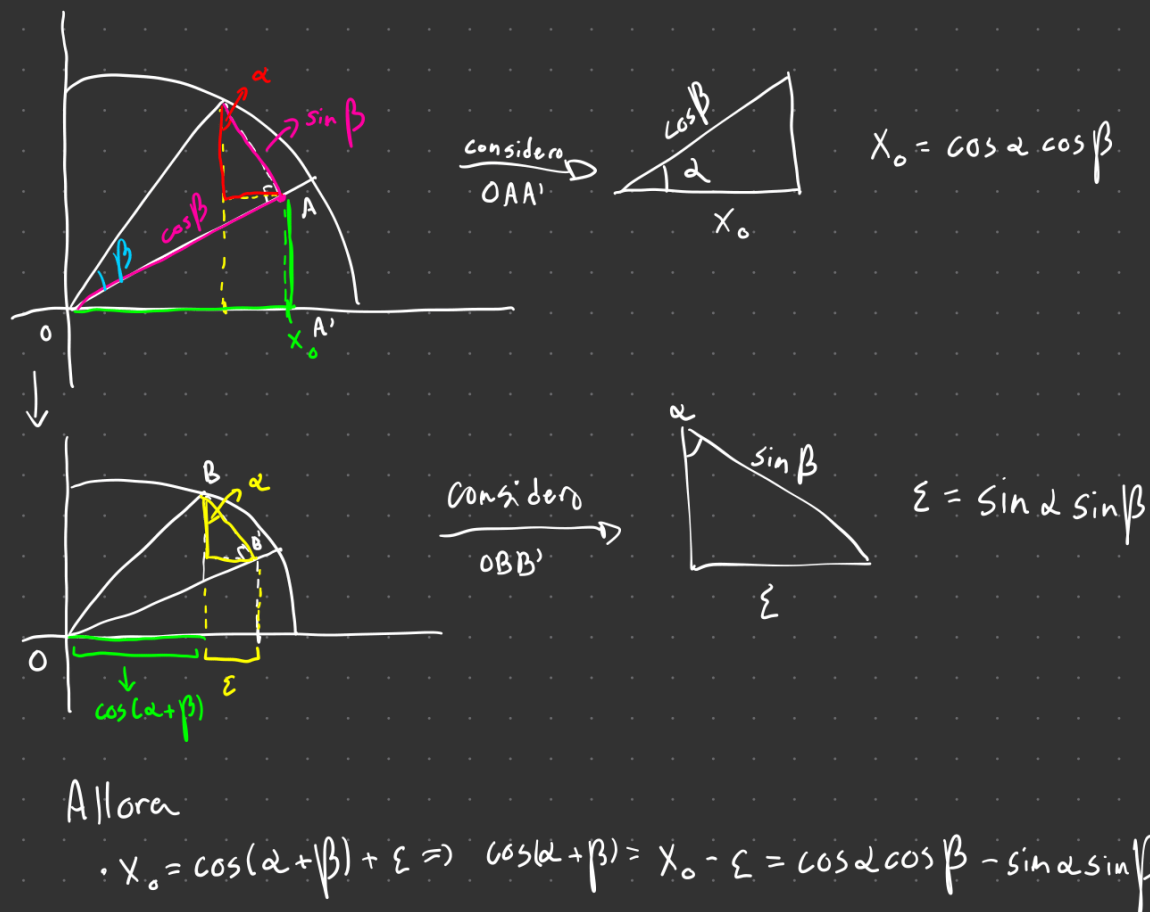 α
sin β
β
cosβ
A
O
A'
X₀
considero
OAA'
cosβ
α
X₀
X₀ = cos α cos β
B
α
B'
O
ε
cos(α+β)
Considero
OBB'
α
sin β
ε
ε = sin α sin β
Allora
• X₀ = cos(α+β) + ε => cos(α+β) = X₀ - ε = cos α cos β - sin α sin β